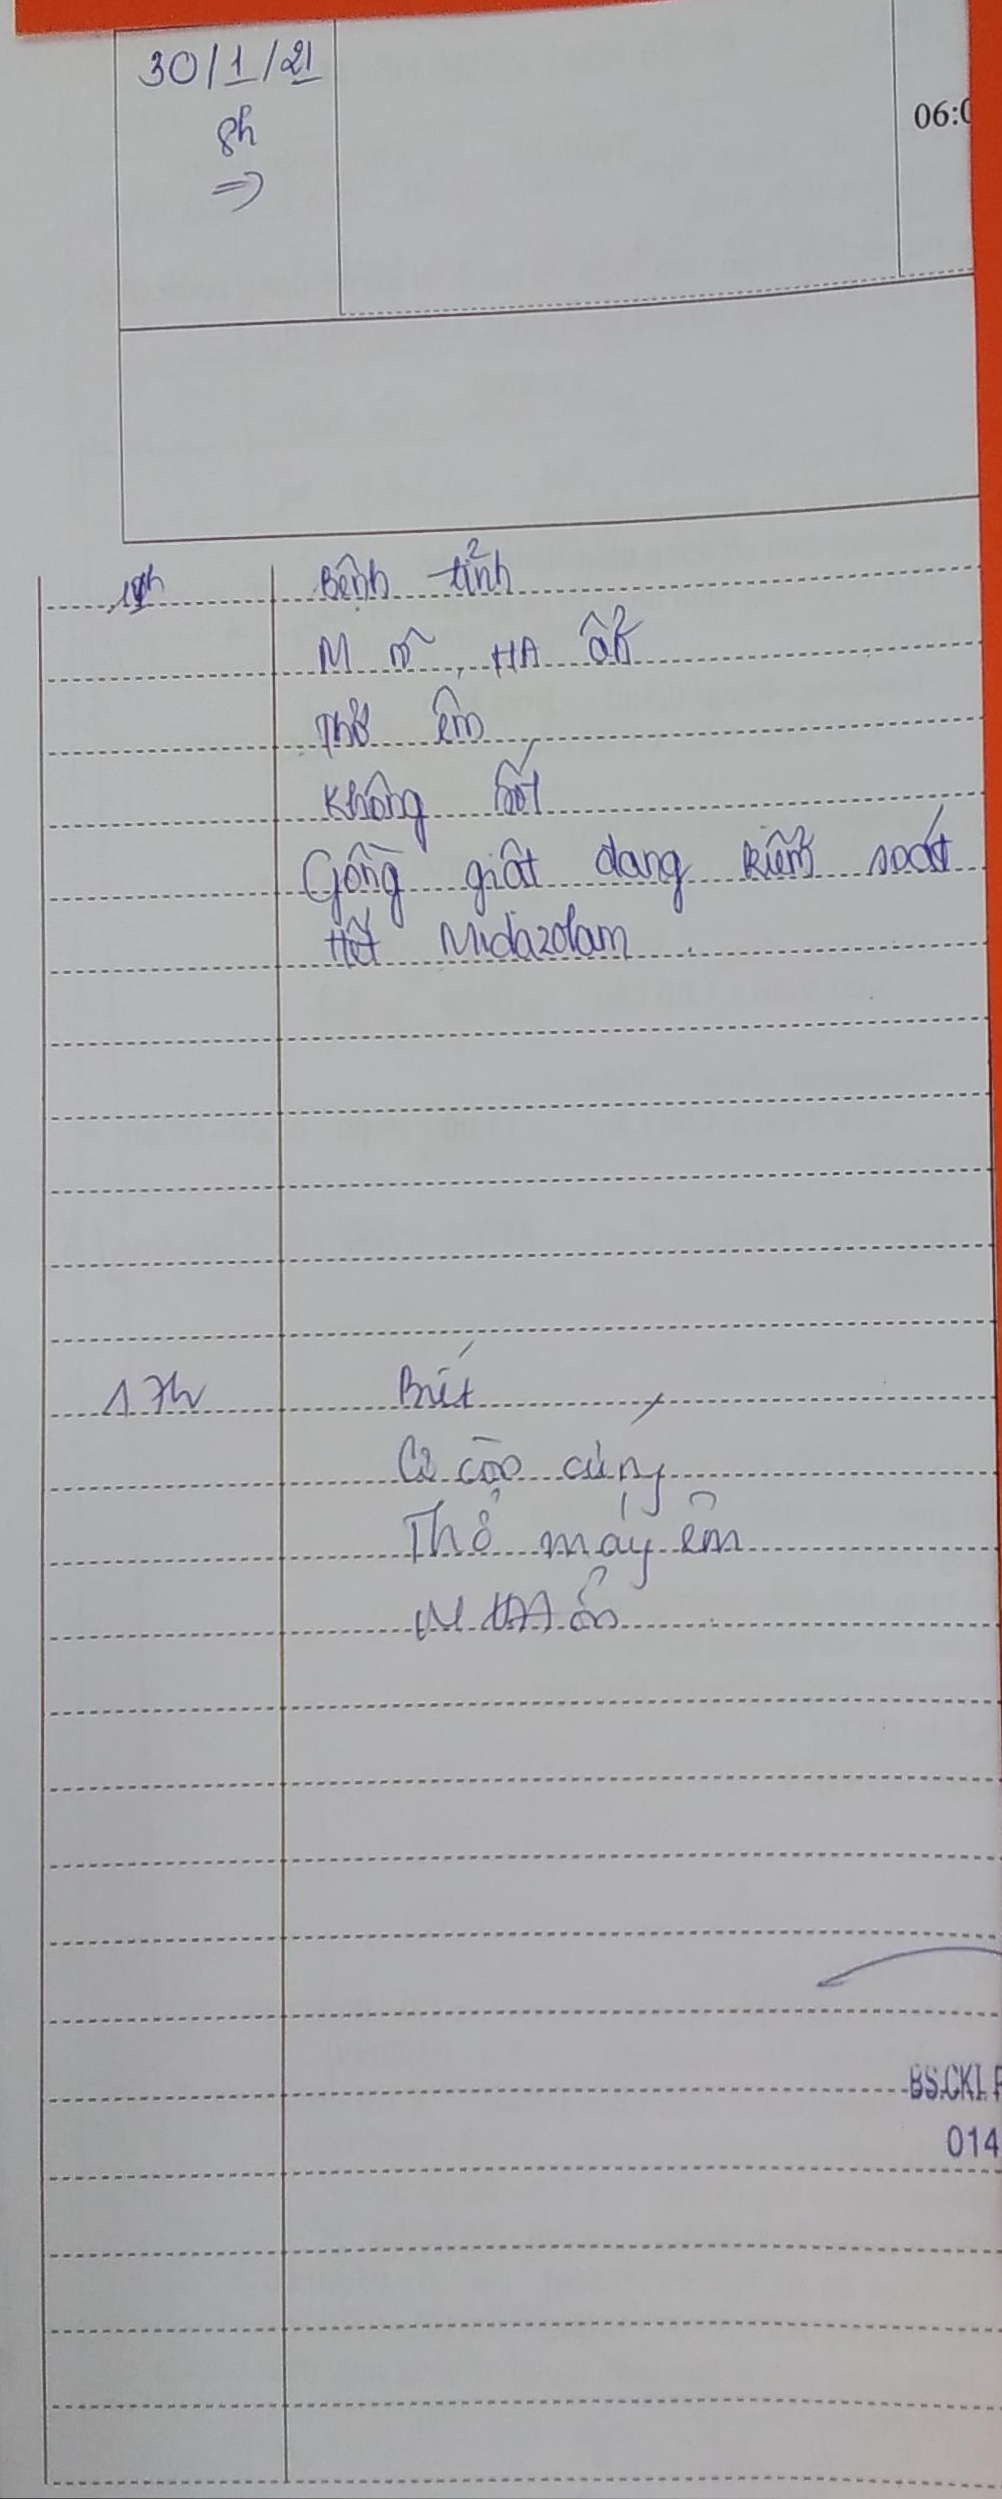 30/1/21
8h
⇒
06:0
Bệnh tỉnh
M rõ, HA ổn
Thở êm
Không sốt
Gồng giật đang kiểm soát
Hết Midazolam
17h
Biết
Cơ còn cứng
Thở máy êm
M HA ổn
BS.CKI.
014